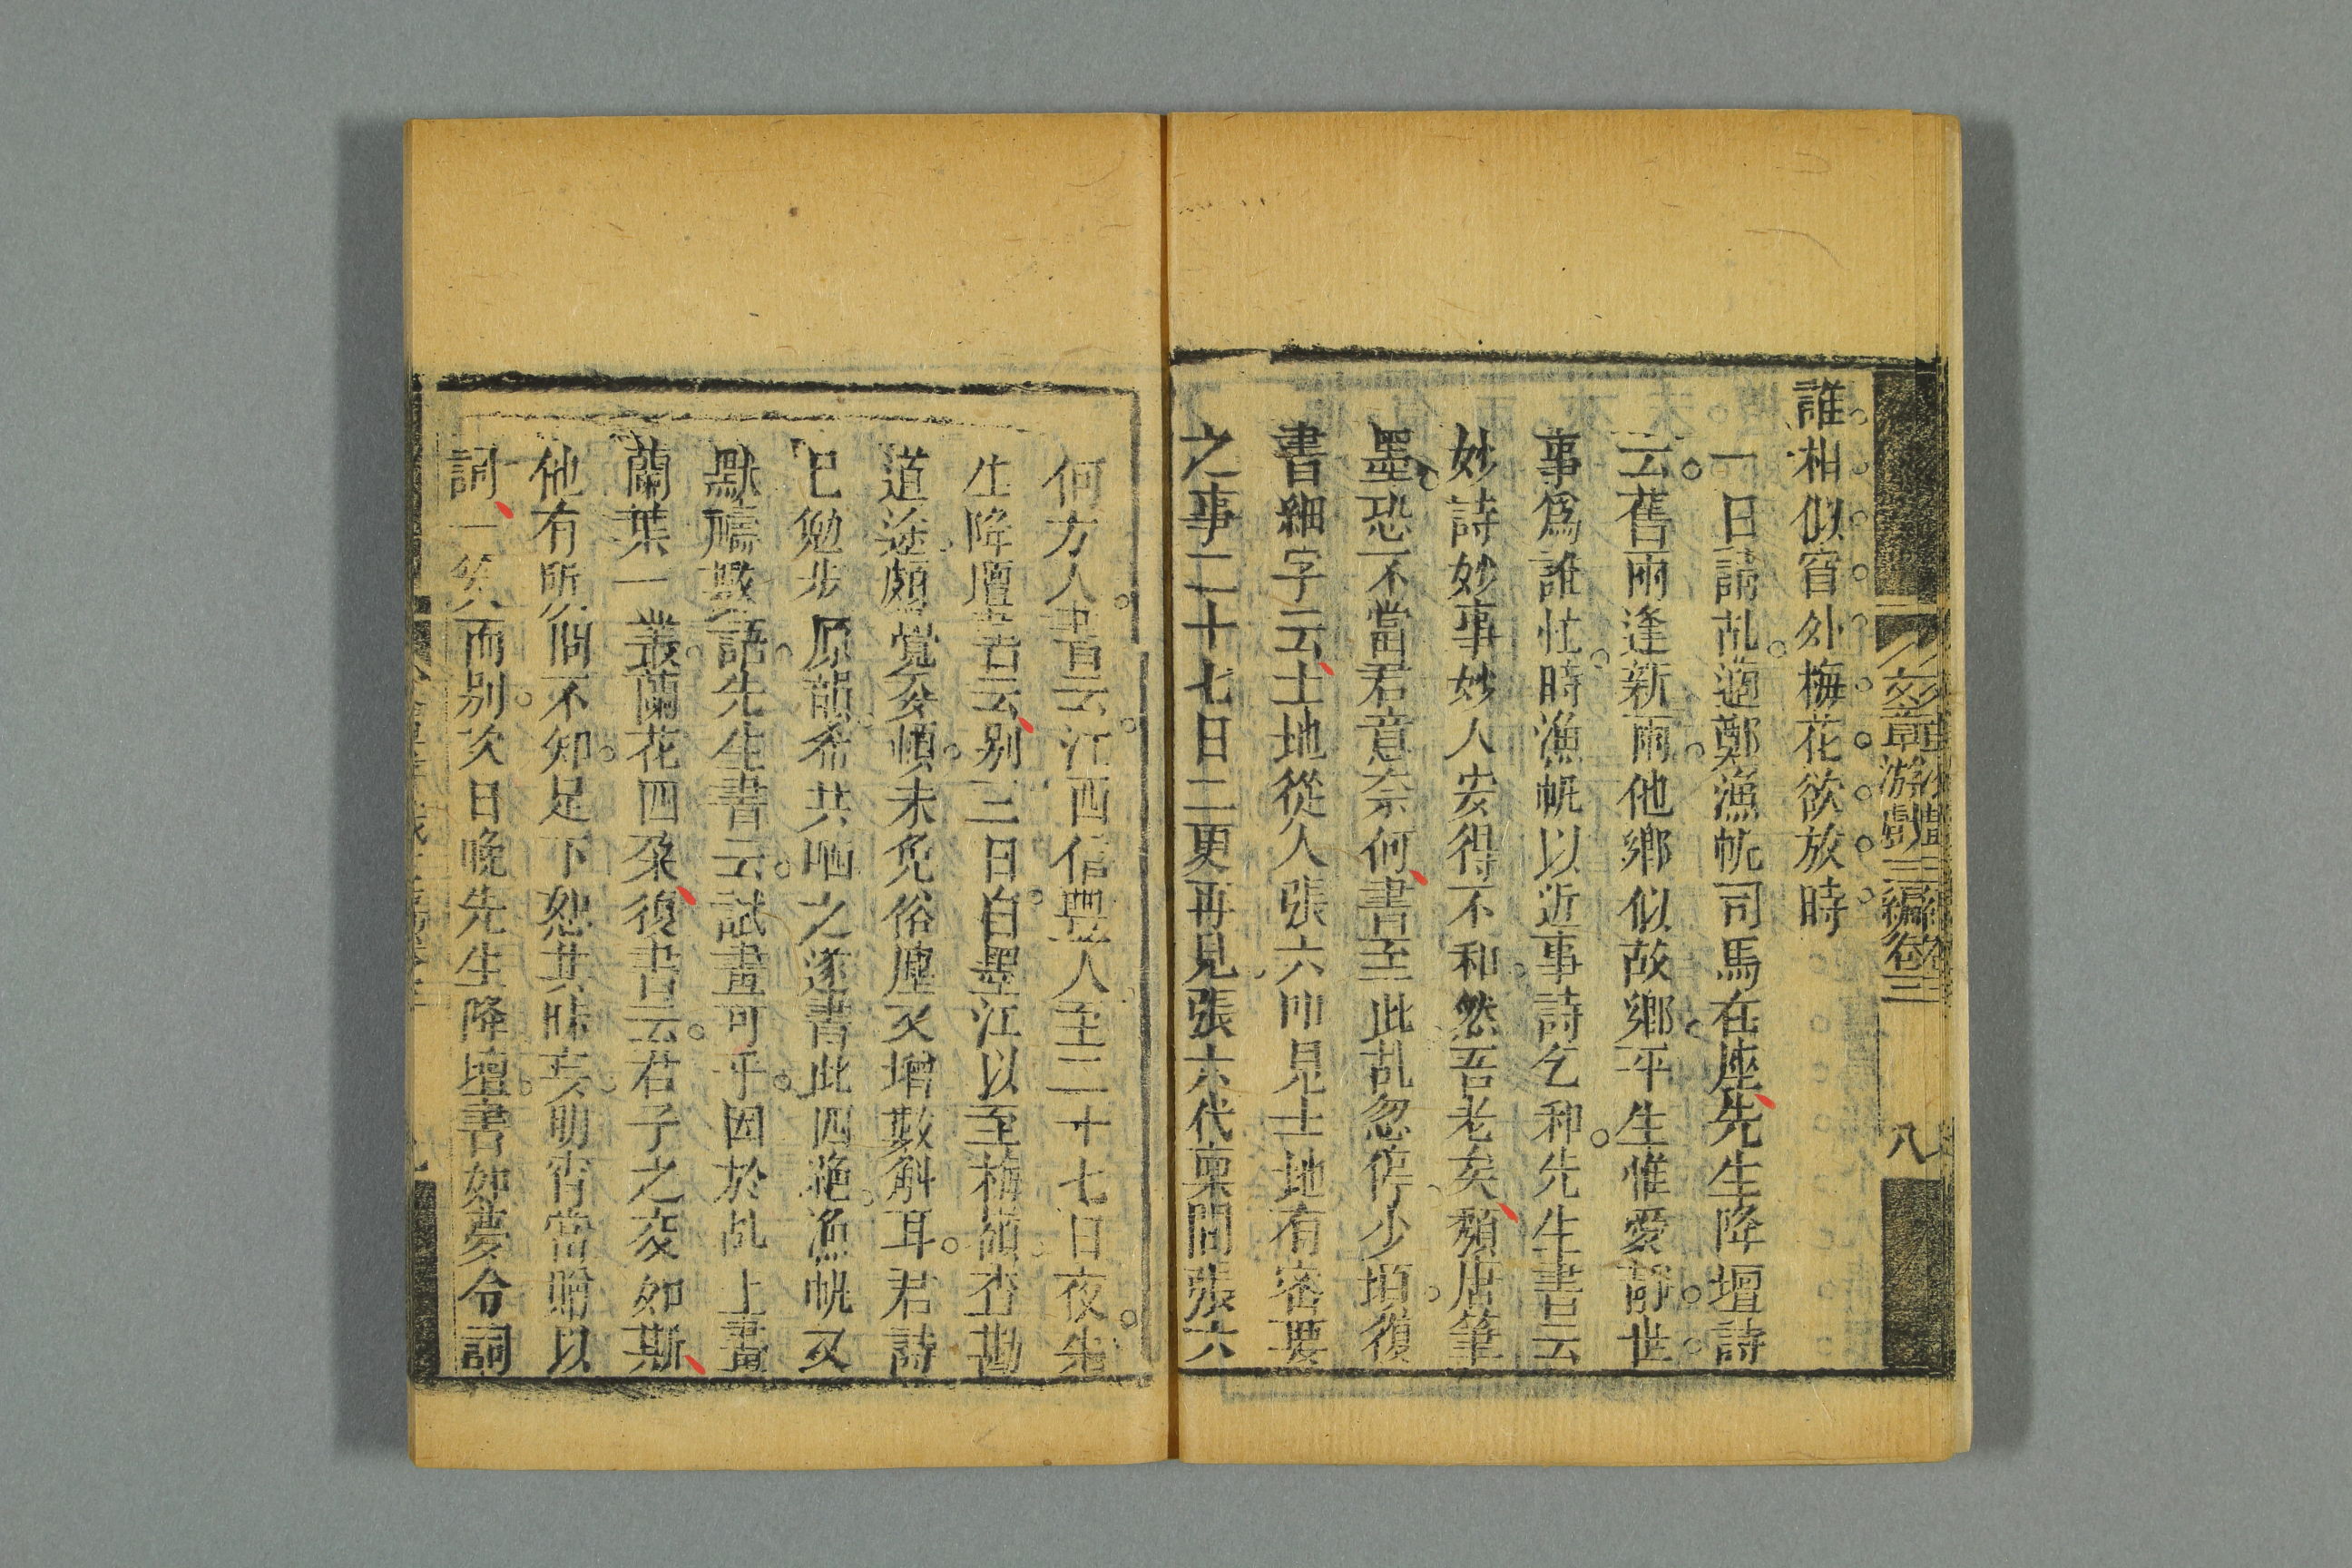 文章游戲三編卷三
八
誰相似窗外梅花欲放時
一日請乩適鄭漁帆司馬在座先生降壇詩
云舊雨逢新雨他鄉似故鄉平生惟愛靜世
事為誰忙時漁帆以近事詩乞和先生書云
妙詩妙事妙人安得不和然吾老矣頹唐筆
墨恐不當君意奈何書至此乩忽停少頃復
書細字云土地從人張六叩見土地有密要
之事二十七日二更再見張六代稟問張六
何方人書云江西信豐人至二十七日夜先
生降壇書云別三日自墨江以至梅嶺查勘
道途頗覺委頓未免俗塵又增數斛耳君詩
已勉步原韻希共哂之遂書此四艷漁帆又
默禱數語先生書云試畫可乎因於乩上畫
蘭葉一叢蘭花四朵復書云君子之交如斯
他有所問不知足下恕其昧妄明宵當贈以
詞一笑而別次日晚先生降壇書如夢令詞